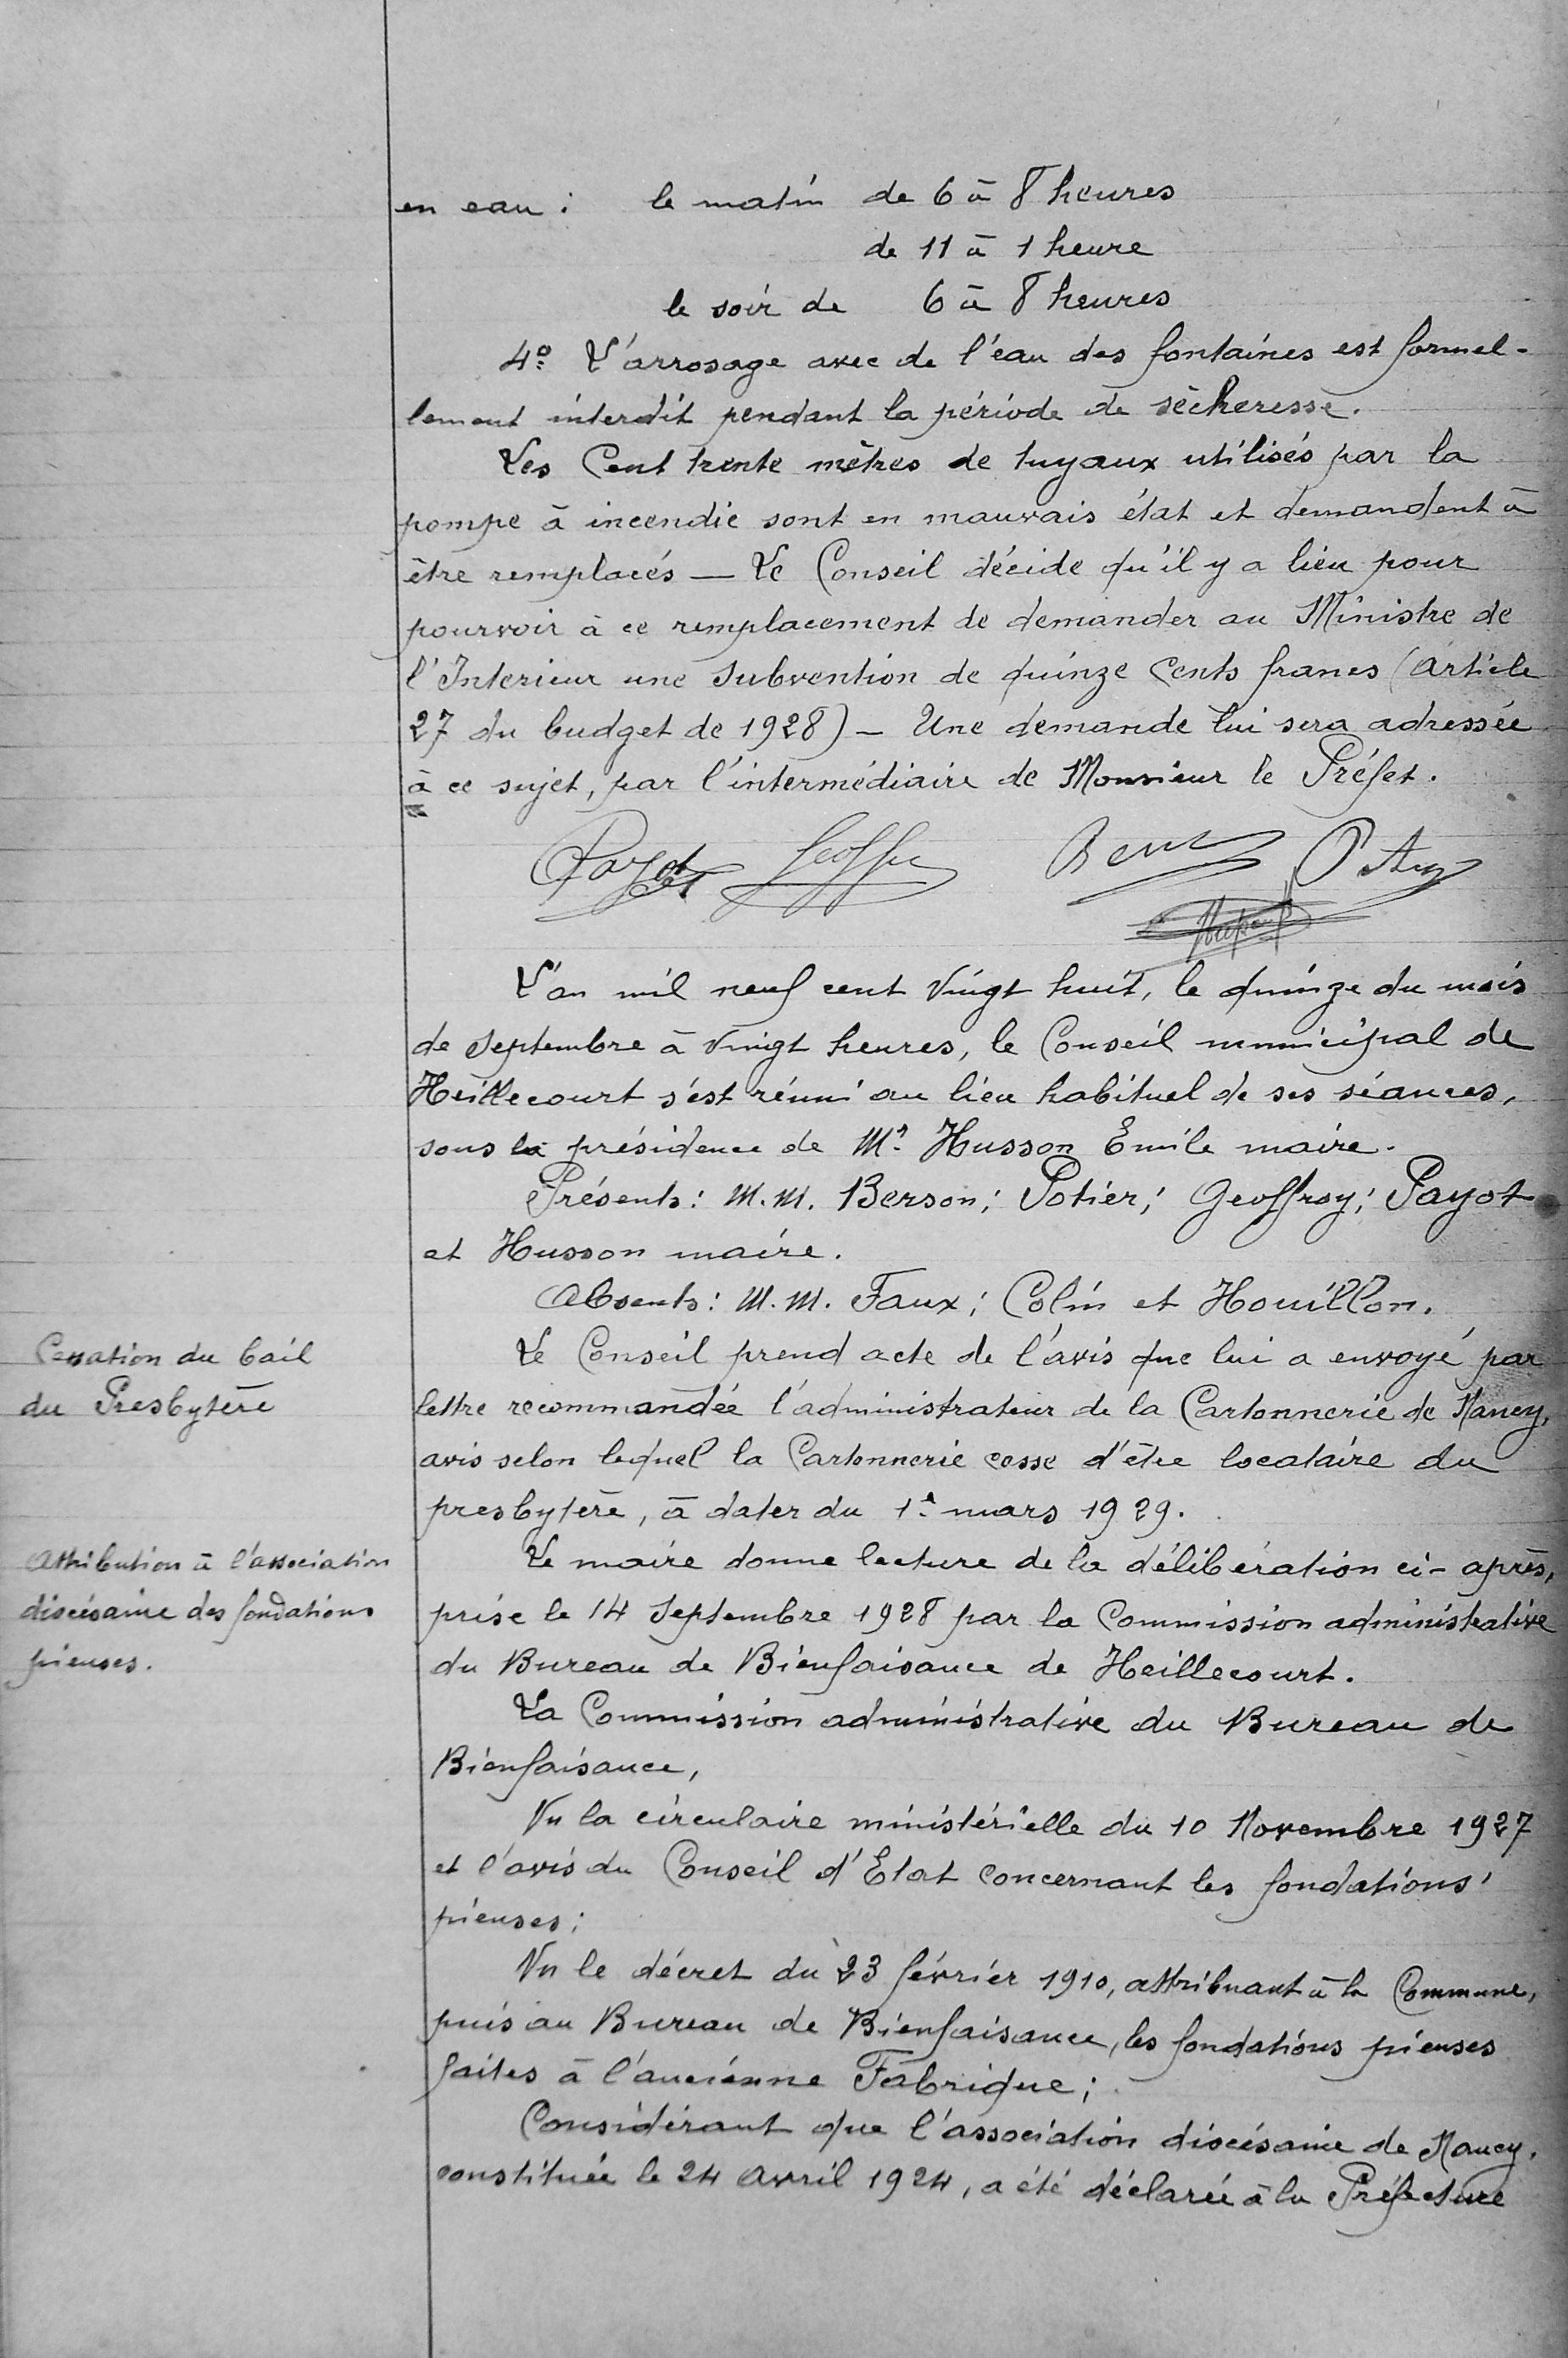 en eau : le matin de 6 à 8 heures
de 11 à 1 heure
le soir de 6 à 8 heures
4º L'arrosage avec de l'eau des fontaines est formel-
lement interdit pendant la période de sècheresse.
Les Cent trente mètres de tuyaux utilisés par la
pompe à incendie sont en mauvais état et demandent à
être remplacés — Le Conseil décide qu'il y a lieu pour
pourvoir à ce remplacement de demander au Ministre de
l'Interieur une Subvention de quinze Cents francs (article
27 du budget de 1928) — Une demande lui sera adressée
à ce sujet, par l'intermédiaire de Monsieur le Préfet.
Payot
L'an mil neuf cent Vingt huit, le quinze du mois
de Septembre à Vingt heures, le Conseil municipal de
Heillecourt s'est réuni au lieu habituel de ses séances,
sous la présidence de Mr Husson Emile maire.
Présents : M.M. Berson ; Potier ; Geoffroy ; Payot
et Husson maire.
Absents : M.M. Faux ; Colin et Houillon.
Cessation du bail
du Presbytère
Le Conseil prend acte de l'avis que lui a envoyé, par
lettre recommandée l'administrateur de la Cartonnerie de Nancy,
avis selon lequel la Cartonnerie cesse d'être locataire du
presbytère, à dater du 1er mars 1929.
Attribution à l'association
diocésaine des fondations
pieuses.
Le maire donne lecture de la délibération ci-après,
prise le 14 Septembre 1928 par la Commission administrative
du Bureau de Bienfaisance de Heillecourt.
La Commission administrative du Bureau de
Bienfaisance,
Vu la circulaire ministérielle du 10 Novembre 1927
et l'avis du Conseil d'Etat concernant les fondations
pieuses ;
Vu le décret du 23 février 1910, attribuant à la Commune,
puis au Bureau de Bienfaisance, les fondations pieuses
faites à l'ancienne Fabrique ;
Considérant que l'association diocésaine de Nancy,
constituée le 24 Avril 1924, a été déclarée à la Préfecture